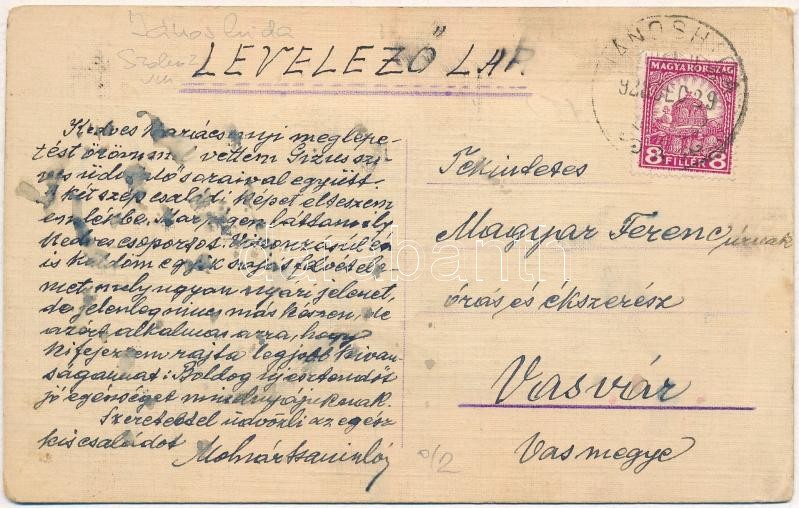 Jánoshida
Szolnok
vm
LEVELEZŐ LAP.
JÁNOSHIDA
928 DEC 29
MAGYARORSZÁG
8 FILLÉR 8
Kedves karácsonyi meglepe-
tést örömmel vettem Gizus szi-
ves üdvözlő soraival együtt.
A két szép családi képet elteszem
emlékbe. Már régen láttam ily
kedves csoportot. Viszonzásul én
is küldöm egyik saját felvétele-
met, mely ugyan nyári jelenet,
de jelenleg nincs más készen, de
azért alkalmas arra, hogy
kifejezzem rajta legjobb kíván-
ságaimat: Boldog újesztendőt
jó egészséget mindnyájuknak.
Szeretettel üdvözli az egész
kis családot
Molnár
Tekintetes
Magyar Ferenc úrnak
órás és ékszerész
Vasvár
Vasmegye
darabanth